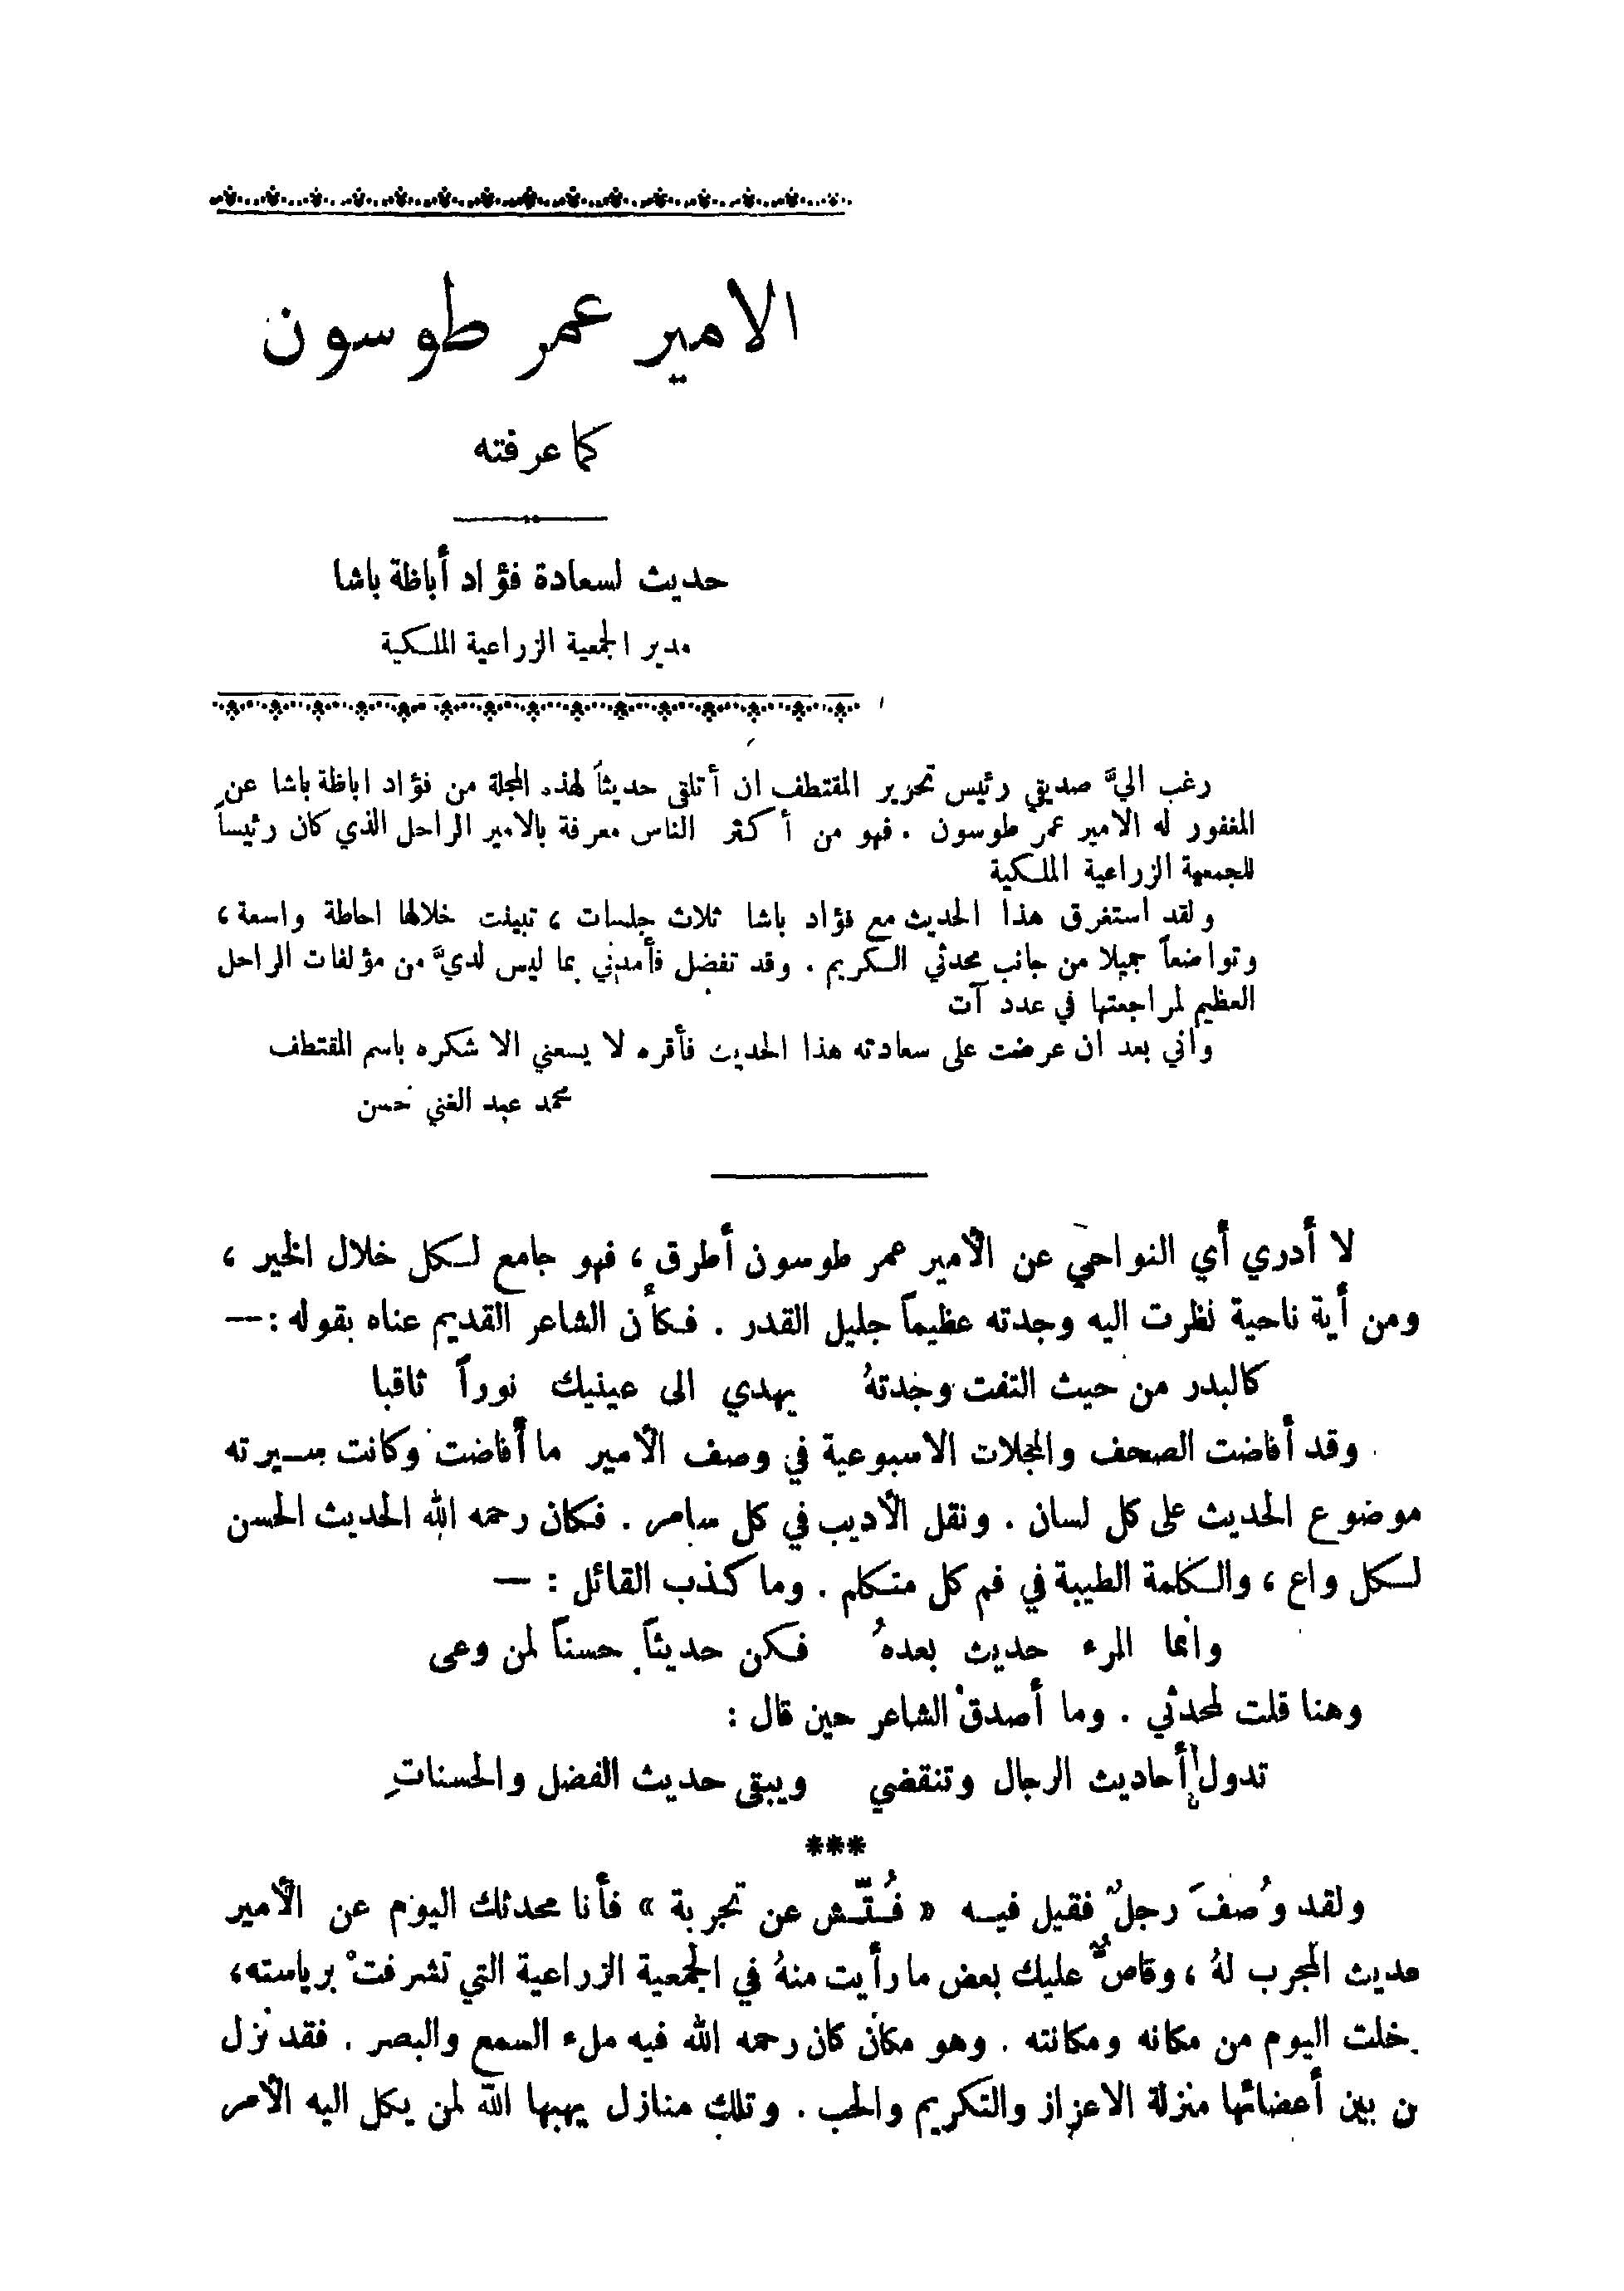 الامير عمر طوسون
كما عرفته
حديث لسعادة فؤاد أباظة باشا
مدير الجمعية الزراعية الملكية
رغب اليَّ صديقي رئيس تحرير المقتطف ان أتلقى حديثاً لهذه المجلة من فؤاد اباظة باشا عن
المغفور له الامير عمر طوسون . فهو من أكثر الناس معرفة بالامير الراحل الذي كان رئيساً
للجمعية الزراعية الملكية
ولقد استغرق هذا الحديث مع فؤاد باشا ثلاث جلسات ، تبينت خلالها احاطة واسعة ،
وتواضعاً جميلا من جانب محدثي الكريم . وقد تفضل فأمدني بما ليس لديَّ من مؤلفات الراحل
العظيم لمراجعتها في عدد آت
واني بعد ان عرضت على سعادته هذا الحديث فأقره لا يسعني الا شكره باسم المقتطف
محمد عبد الغني حسن
لا أدري أي النواحي عن الأمير عمر طوسون أطرق ، فهو جامع لكل خلال الخير ،
ومن أية ناحية نظرت اليه وجدته عظيماً جليل القدر . فكأن الشاعر القديم عناه بقوله : —
كالبدر من حيث التفت وجدتهُ يهدي الى عينيك نوراً ثاقبا
وقد أفاضت الصحف والمجلات الاسبوعية في وصف الأمير ما أفاضت وكانت سيرته
موضوع الحديث على كل لسان . ونقل الأديب في كل سامر . فكان رحمه الله الحديث الحسن
لكل واع ، والكلمة الطيبة في فم كل متكلم . وما كذب القائل : —
وانما المرء حديث بعدهُ فكن حديثاً حسناً لمن وعى
وهنا قلت لمحدثي . وما أصدق الشاعر حين قال :
تدول أحاديث الرجال وتنقضي ويبقى حديث الفضل والحسناتِ
***
ولقد وُصفَ رجلٌ فقيل فيه « فُتّش عن تجربة » فأنا محدثك اليوم عن الأمير
حديث المجرب لهُ ، وقاصٌّ عليك بعض ما رأيت منهُ في الجمعية الزراعية التي تشرفتْ برياسته ،
خلت اليوم من مكانه ومكانته . وهو مكان كان رحمه الله فيه ملء السمع والبصر . فقد نزل
من بين أعضائها منزلة الاعزاز والتكريم والحب . وتلك منازل يهبها الله لمن يكل اليه الأمر